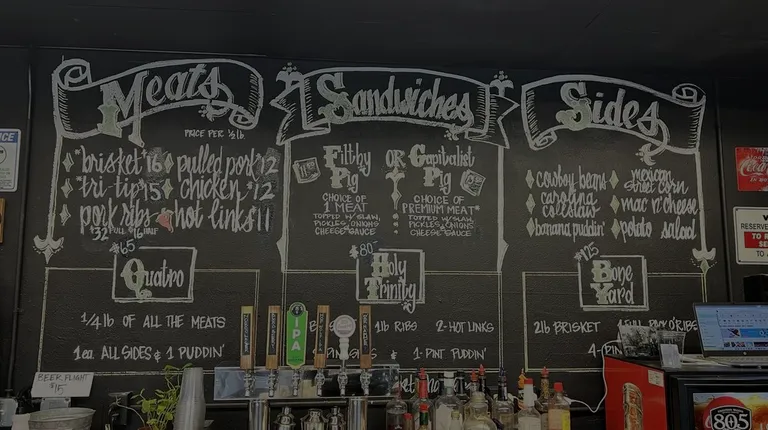 Meats
PRICE PER ½ lb
*brisket 16 pulled pork 12
*tri-tip 15 chicken *12
pork ribs hot links 11
$32 FULL $16 HALF
Sandwiches
Filthy Pig OR Capitalist Pig
CHOICE OF
1 MEAT
TOPPED W/ SLAW,
PICKLES, ONIONS
CHEESE SAUCE
CHOICE OF
PREMIUM MEAT*
TOPPED W/ SLAW,
PICKLES, ONIONS
CHEESE SAUCE
Sides
cowboy beans
carolina
coleslaw
banana puddin'
mexican
street corn
mac n' cheese
potato salad
$65
Quatro
1/4 lb OF ALL THE MEATS
1 ea. ALL SIDES & 1 PUDDIN'
$80
Holy
Trinity
1lb RIBS 2-HOT LINKS
& 1-PINT PUDDIN'
$175
Bone
Yard
2lb BRISKET
RIBS
BEER FLIGHT
$15
IPA
805